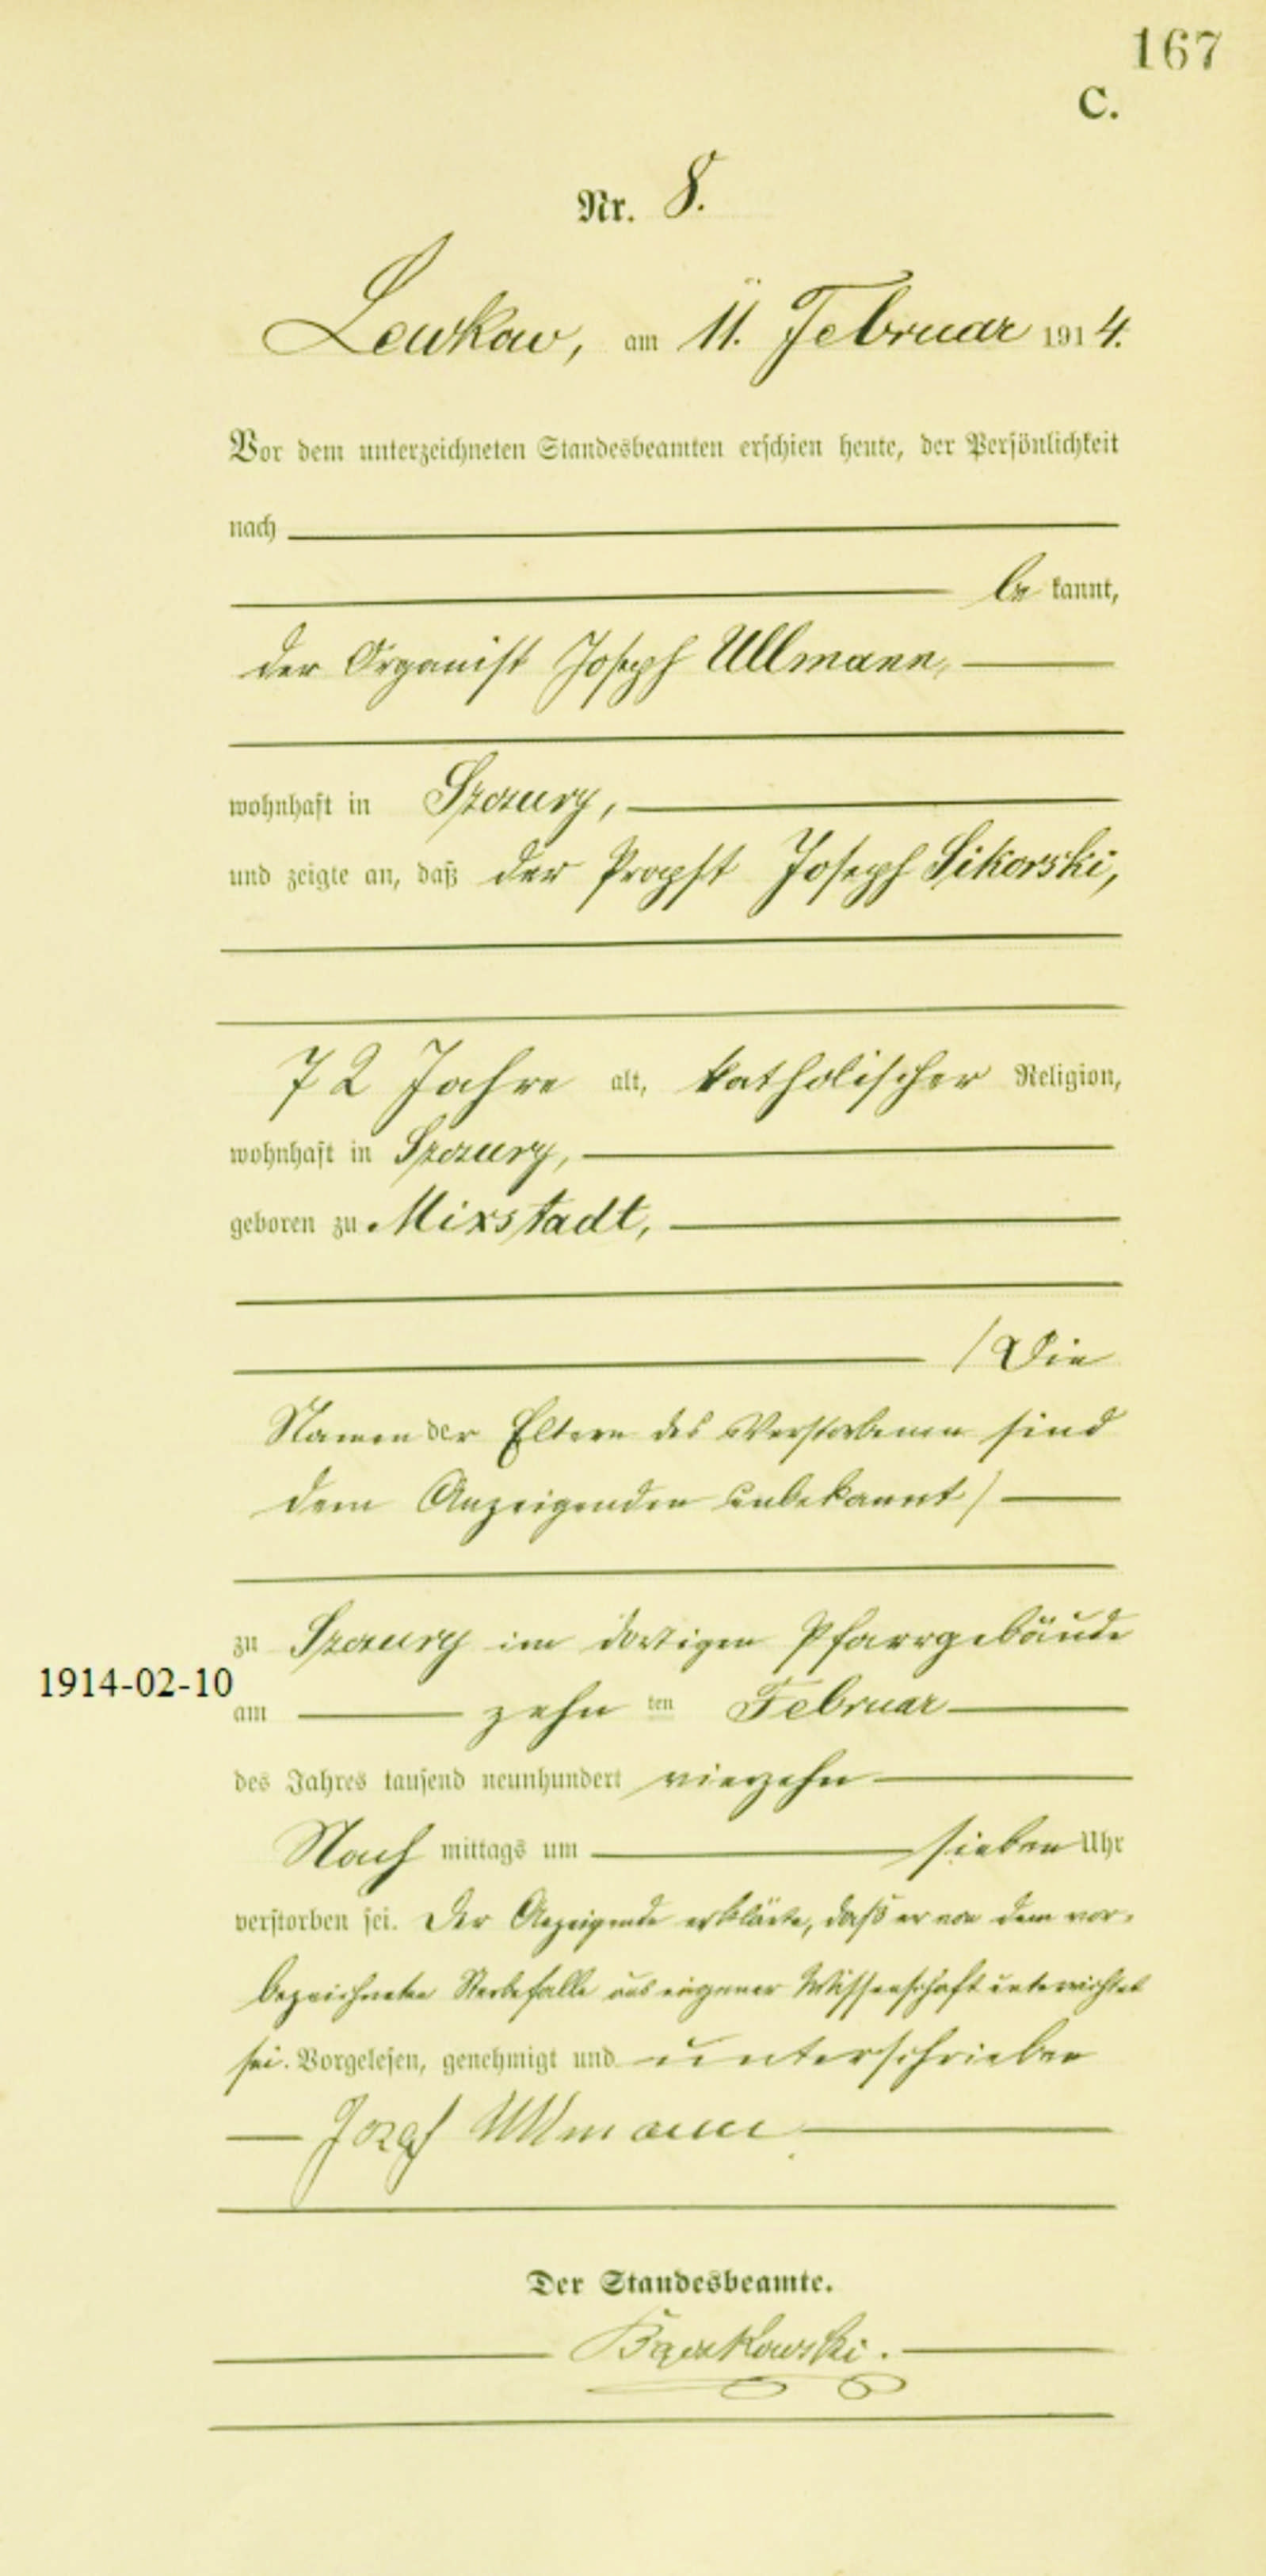 167
C.
Nr. 8.
Lewkow, am 11. Februar 1914.
Vor dem unterzeichneten Standesbeamten erschien heute, der Persönlichkeit
nach
be kannt,
der Organist Joseph Ullmann,
wohnhaft in Szczury,
und zeigte an, daß der Propst Joseph Sikorski,
72 Jahre alt, katholischer Religion,
wohnhaft in Szczury,
geboren zu Mixstadt,
/Die
Namen der Eltern des Verstorbenen sind
dem Anzeigenden unbekannt/
zu Szczury im dortigen Pfarrgebäude
1914-02-10
am zehn ten Februar
des Jahres tausend neunhundert vierzehn
Nach mittags um sieben Uhr
verstorben sei. Der Anzeigende erklärte, daß er von dem vor-
bezeichneten Sterbefalle aus eigener Wissenschaft unterrichtet
sei. Vorgelesen, genehmigt und unterschrieben
Józef Ullmann
Der Standesbeamte.